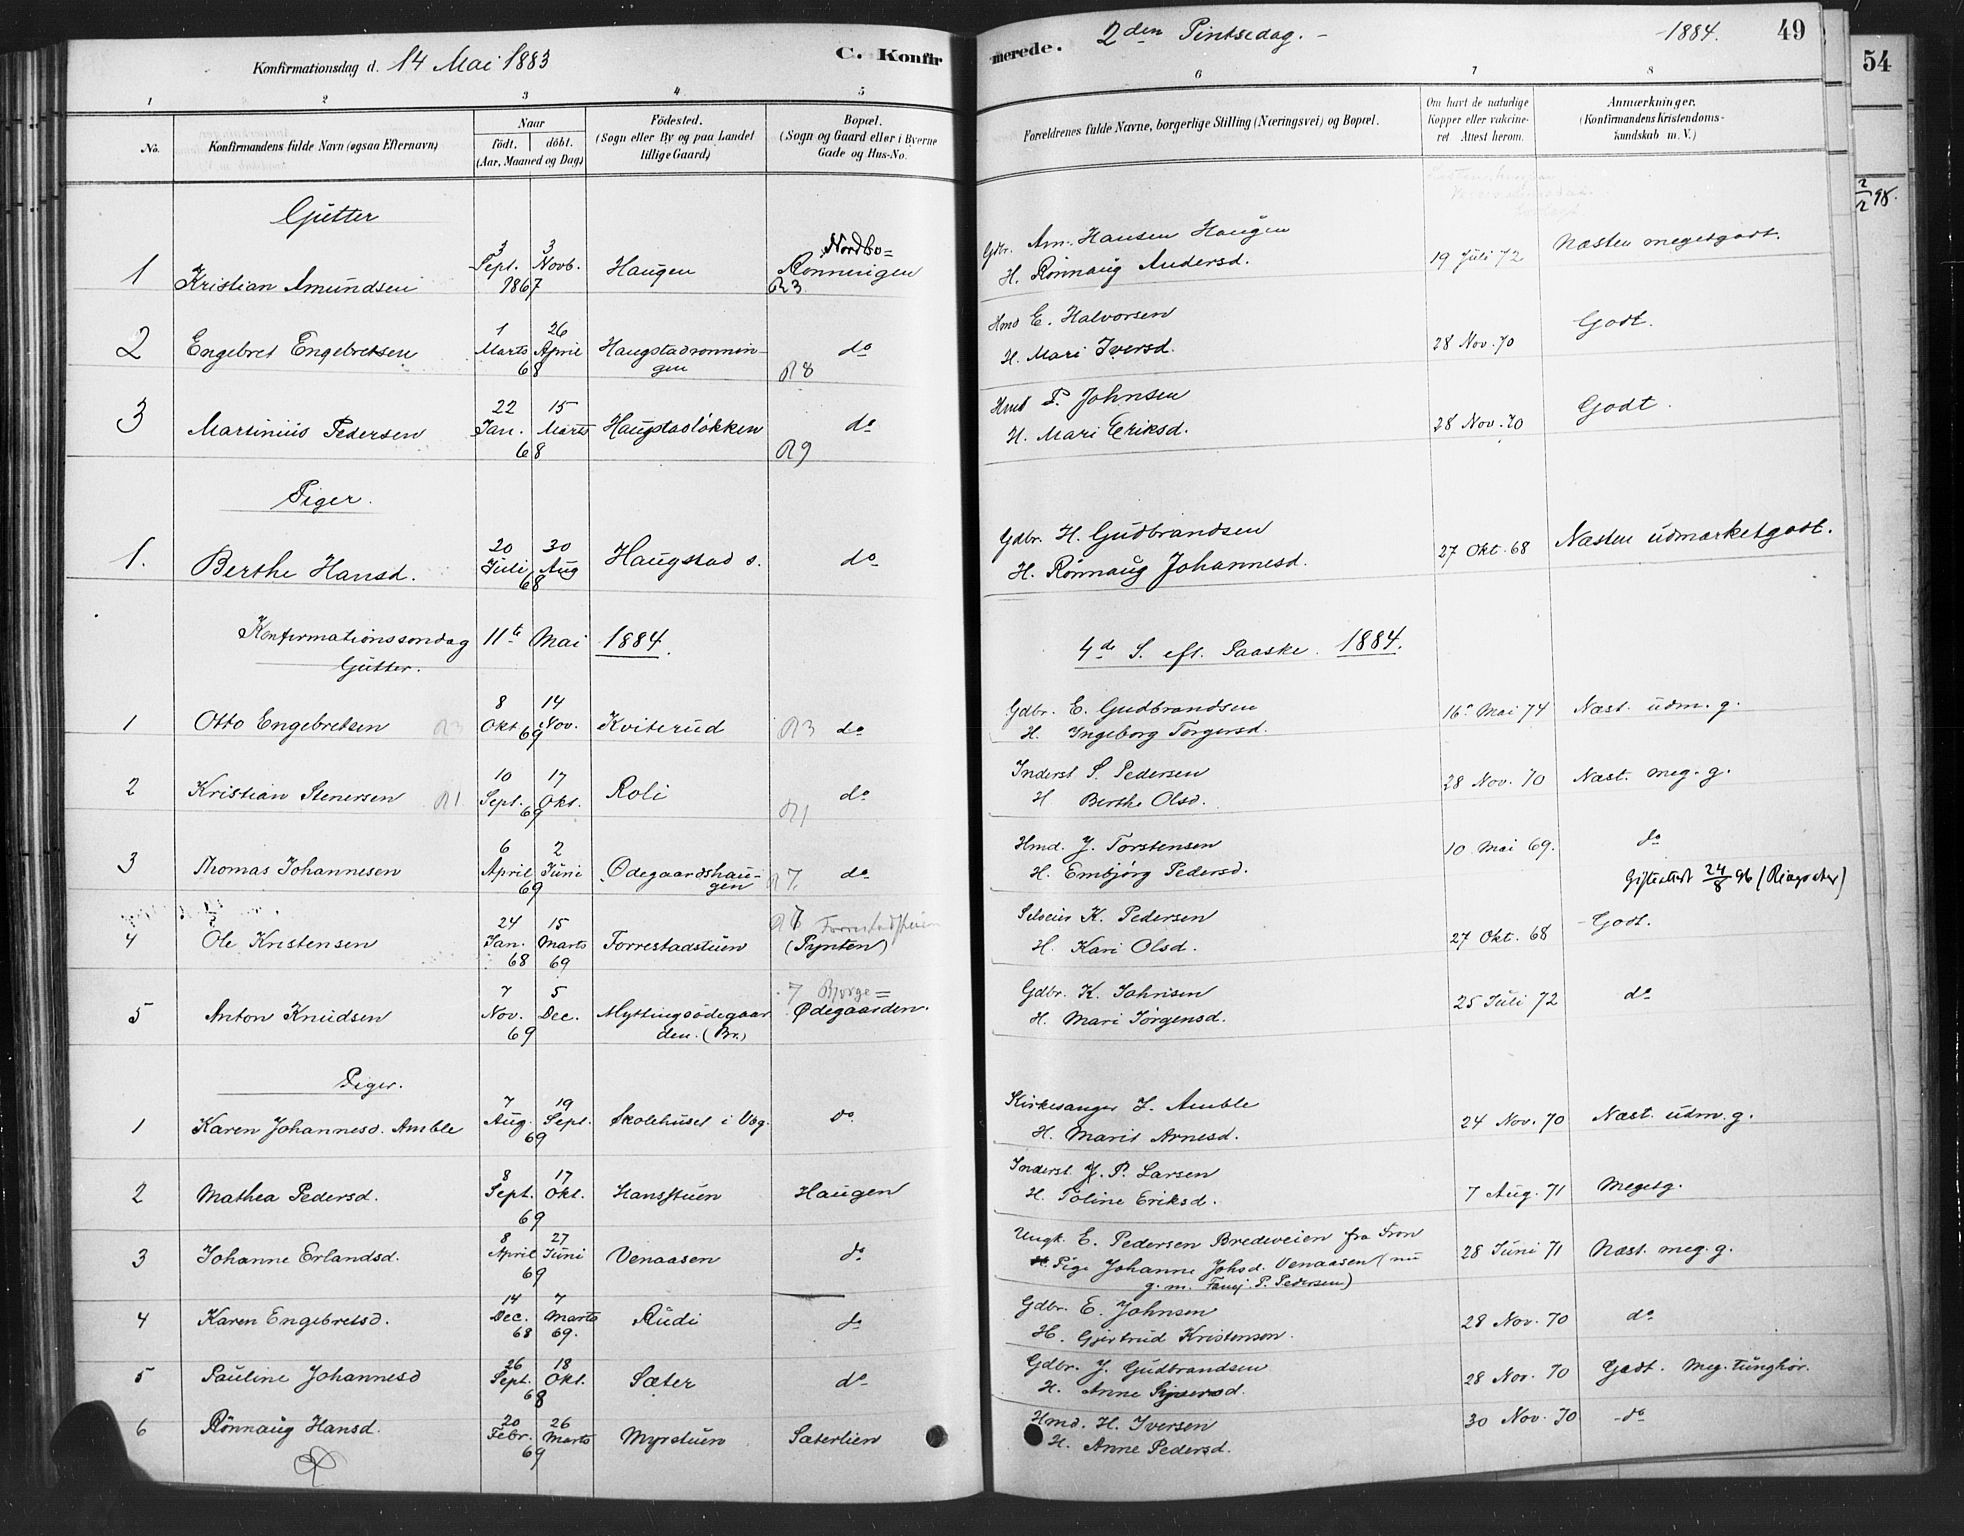 Konfirmationsdag d. 14 Mai 1883
C. Konfirmerede.
2den Pintsedag. - 1884.
49
54
1 2 3 4 5 6 7 8
No.
Konfirmandens fulde Navn (ogsaa Efternavn)
Naar
födt. döbt.
(Aar, Maaned og Dag)
Födested.
(Sogn eller By og paa Landet
lillige Gaard)
Bopæl.
(Sogn og Gaard eller i Byerne
Gade og Hus-No.
Forældrenes fulde Navne, borgerlige Stilling (Næringsvei) og Bopæl.
Om havt de naturlige
Kopper eller vakcine-
ret Attest herom.
Anmærkninger.
(Konfirmandens Kristendoms-
kundskab m. V.)
2/2 98.
Gutter
1 Kristian Amundsen 3 Sept. 3 Novb. 1867 Haugen Nordbo= Rønningen R3 Gdbr. Am. Hansen Haugen H. Rönnaug Andersd. 19 Juli 72 Næsten megetgodt.
2 Engebret Engebretsen 1 Marts 26 April 68 Haugstadrønnin-gen do R8 Hmd E. Halvorsen H. Mari Iversd. 28 Nov. 70 Godt.
3 Martinius Pedersen 22 Jan. 15 Marts 68 Haugstadløkken do R9 Hmd P. Johnsen H. Mari Eriksd. 28 Nov. 70 Godt.
Piger.
1. Berthe Hansd. 20 Juli 30 Aug 68 Haugstad s. do Gdbr. H. Gudbrandsen H. Rønnaug Johannesd. 27 Okt. 68 Næsten udmærketgodt.
Konfirmationssøndag 11te Mai 1884. 4de S. eft. Paaske. 1884.
Gutter.
1 Otto Engebretsen R3 8 Okt 14 Nov. 69 Kviterud R3 do Gdbr. E. Gudbrandsen H. Ingeborg Torgersd. 16 Mai 74 Næst. udm. g.
2 Kristian Stenersen R1 10 Sept. 17 Okt. 69 Roli R1 do Inderst S. Pedersen H Berthe Olsd. 28 Nov. 70 Næst. meg. g.
3 Thomas Johannesen 6 April 2 Juni 69 Ødegaardshau-gen R7. do Hmd. J. Torstensen H. Embjørg Pedersd. 10 Mai 69. do
Gifteattest 24/8 96 (Ringsaker)
4 Ole Kristensen 24 Jan. 68 15 Marts 69 Forrestadstuen R7 Forrestadstuen (Pynten) Selveier K. Pedersen H. Kari Olsd. 27 Okt. 68 Godt.
5 Anton Knudsen 7 Nov. 5 Dec. 69 Myttingsødegaar den. (Br.) 7 Bjørge= Ødegaarden. Gdbr. K. Johnsen H. Mari Jørgensd. 25 Juli 72 do
Piger.
1 Karen Johannesd. Amble 7 Aug. 19 Sept. 69 Skolehuset i Vbg. do Kirkesanger J. Amble H. Marit Arnesd. 24 Nov. 70 Næst. udm. g.
2 Mathea Pedersd. 8 Sept. 17 Okt. 69 Hansstuen Haugen Inderst J. P. Larsen H. Toline Eriksd. 7 Aug. 71 Megetg.
3 Johanne Erlandsd. 8 April 27 Juni 69 Venaasen do Ungk. E. Pedersen Bredeveien fra Fron Pige Johanne Johsd. Venaasen (nu g. m. P. Pedersen) 28 Juni 71 Næst. meg. g.
4 Karen Engebretsd. 14 Dec. 68 7 Marts 69. Rudi do Gdbr. E. Johnsen H. Gjertrud Kristensen. 28 Nov. 70 do
5 Pauline Johannesd 26 Sept. 18 Okt. 68 Sæter do Gdbr. J. Gudbrandsen H. Anne 28 Nov. 70 Godt. Meg. tunghør.
6 Rønnaug Hansd. 20 Febr. 26 Marts 69 Myrstuen Sæterlien Hmd. H. Iversen H. Anne Pedersd. 30 Nov. 70 do